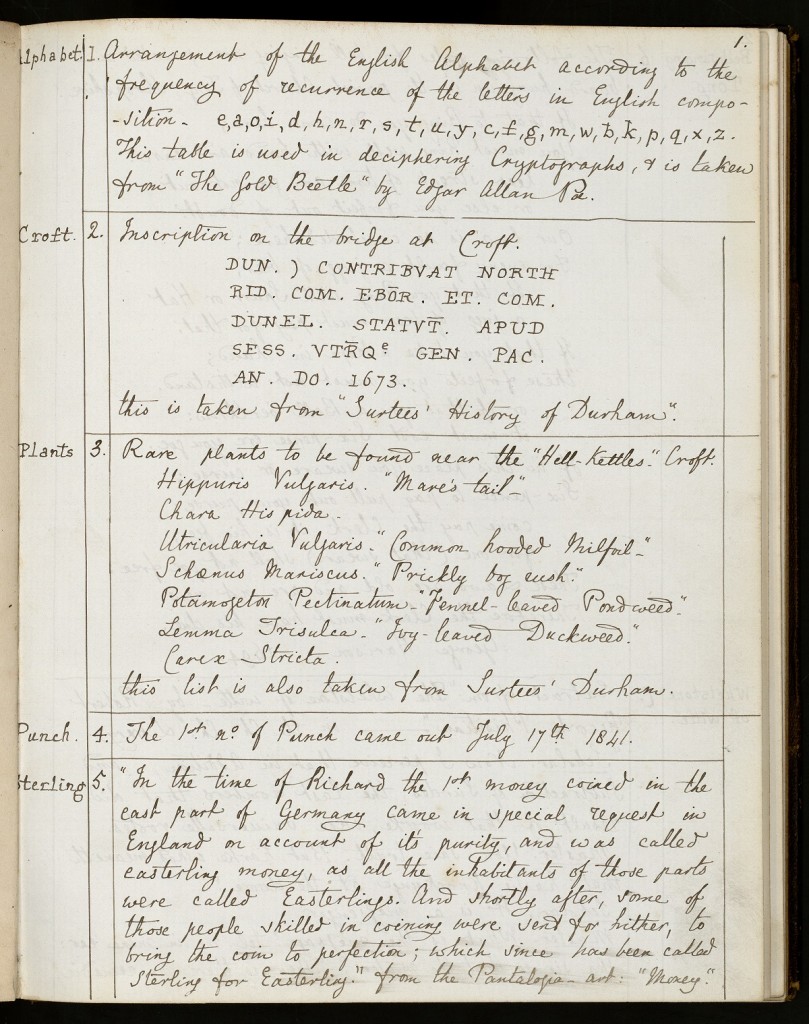 1.
Alphabet. 1. Arrangement of the English Alphabet according to the
frequency of recurrence of the letters in English compo-
-sition - e,a,o,i,d,h,n,r,s,t,u,y,c,f,g,m,w,b,k,p,q,x,z.
This table is used in deciphering Cryptographs, & is taken
from "The Gold Beetle" by Edgar Allan Poe.
Croft. 2. Inscription on the bridge at Croft.
DUN. ) CONTRIBVAT NORTH
RID. COM. EBŌR. ET. COM.
DUNEL. STATVT̄. APUD
SESS. VTR̄Qᵉ GEN. PAC.
AN. DO. 1673.
this is taken from "Surtees' History of Durham".
Plants 3. Rare plants to be found near the "Hell-Kettles." Croft.
Hippuris Vulgaris. "Mare's tail"
Chara Hispida.
Utricularia Vulgaris. "Common hooded Milfoil"
Schœnus Mariscus. "Prickly bog rush."
Potamogeton Pectinatum - "Fennel-leaved Pondweed".
Lemma Trisulca - "Ivy-leaved Duckweed."
Carex Stricta.
this list is also taken from Surtees' Durham.
Punch. 4. The 1st no. of Punch came out July 17th 1841.
Sterling 5. "In the time of Richard the 1st money coined in the
east part of Germany came in special request in
England on account of it's purity, and was called
easterling money, as all the inhabitants of those parts
were called Easterlings. And shortly after, some of
those people skilled in coining were send for hither, to
bring the coin to perfection; which since has been called
Sterling for Easterling." from the Pantalogia - art: "Money".